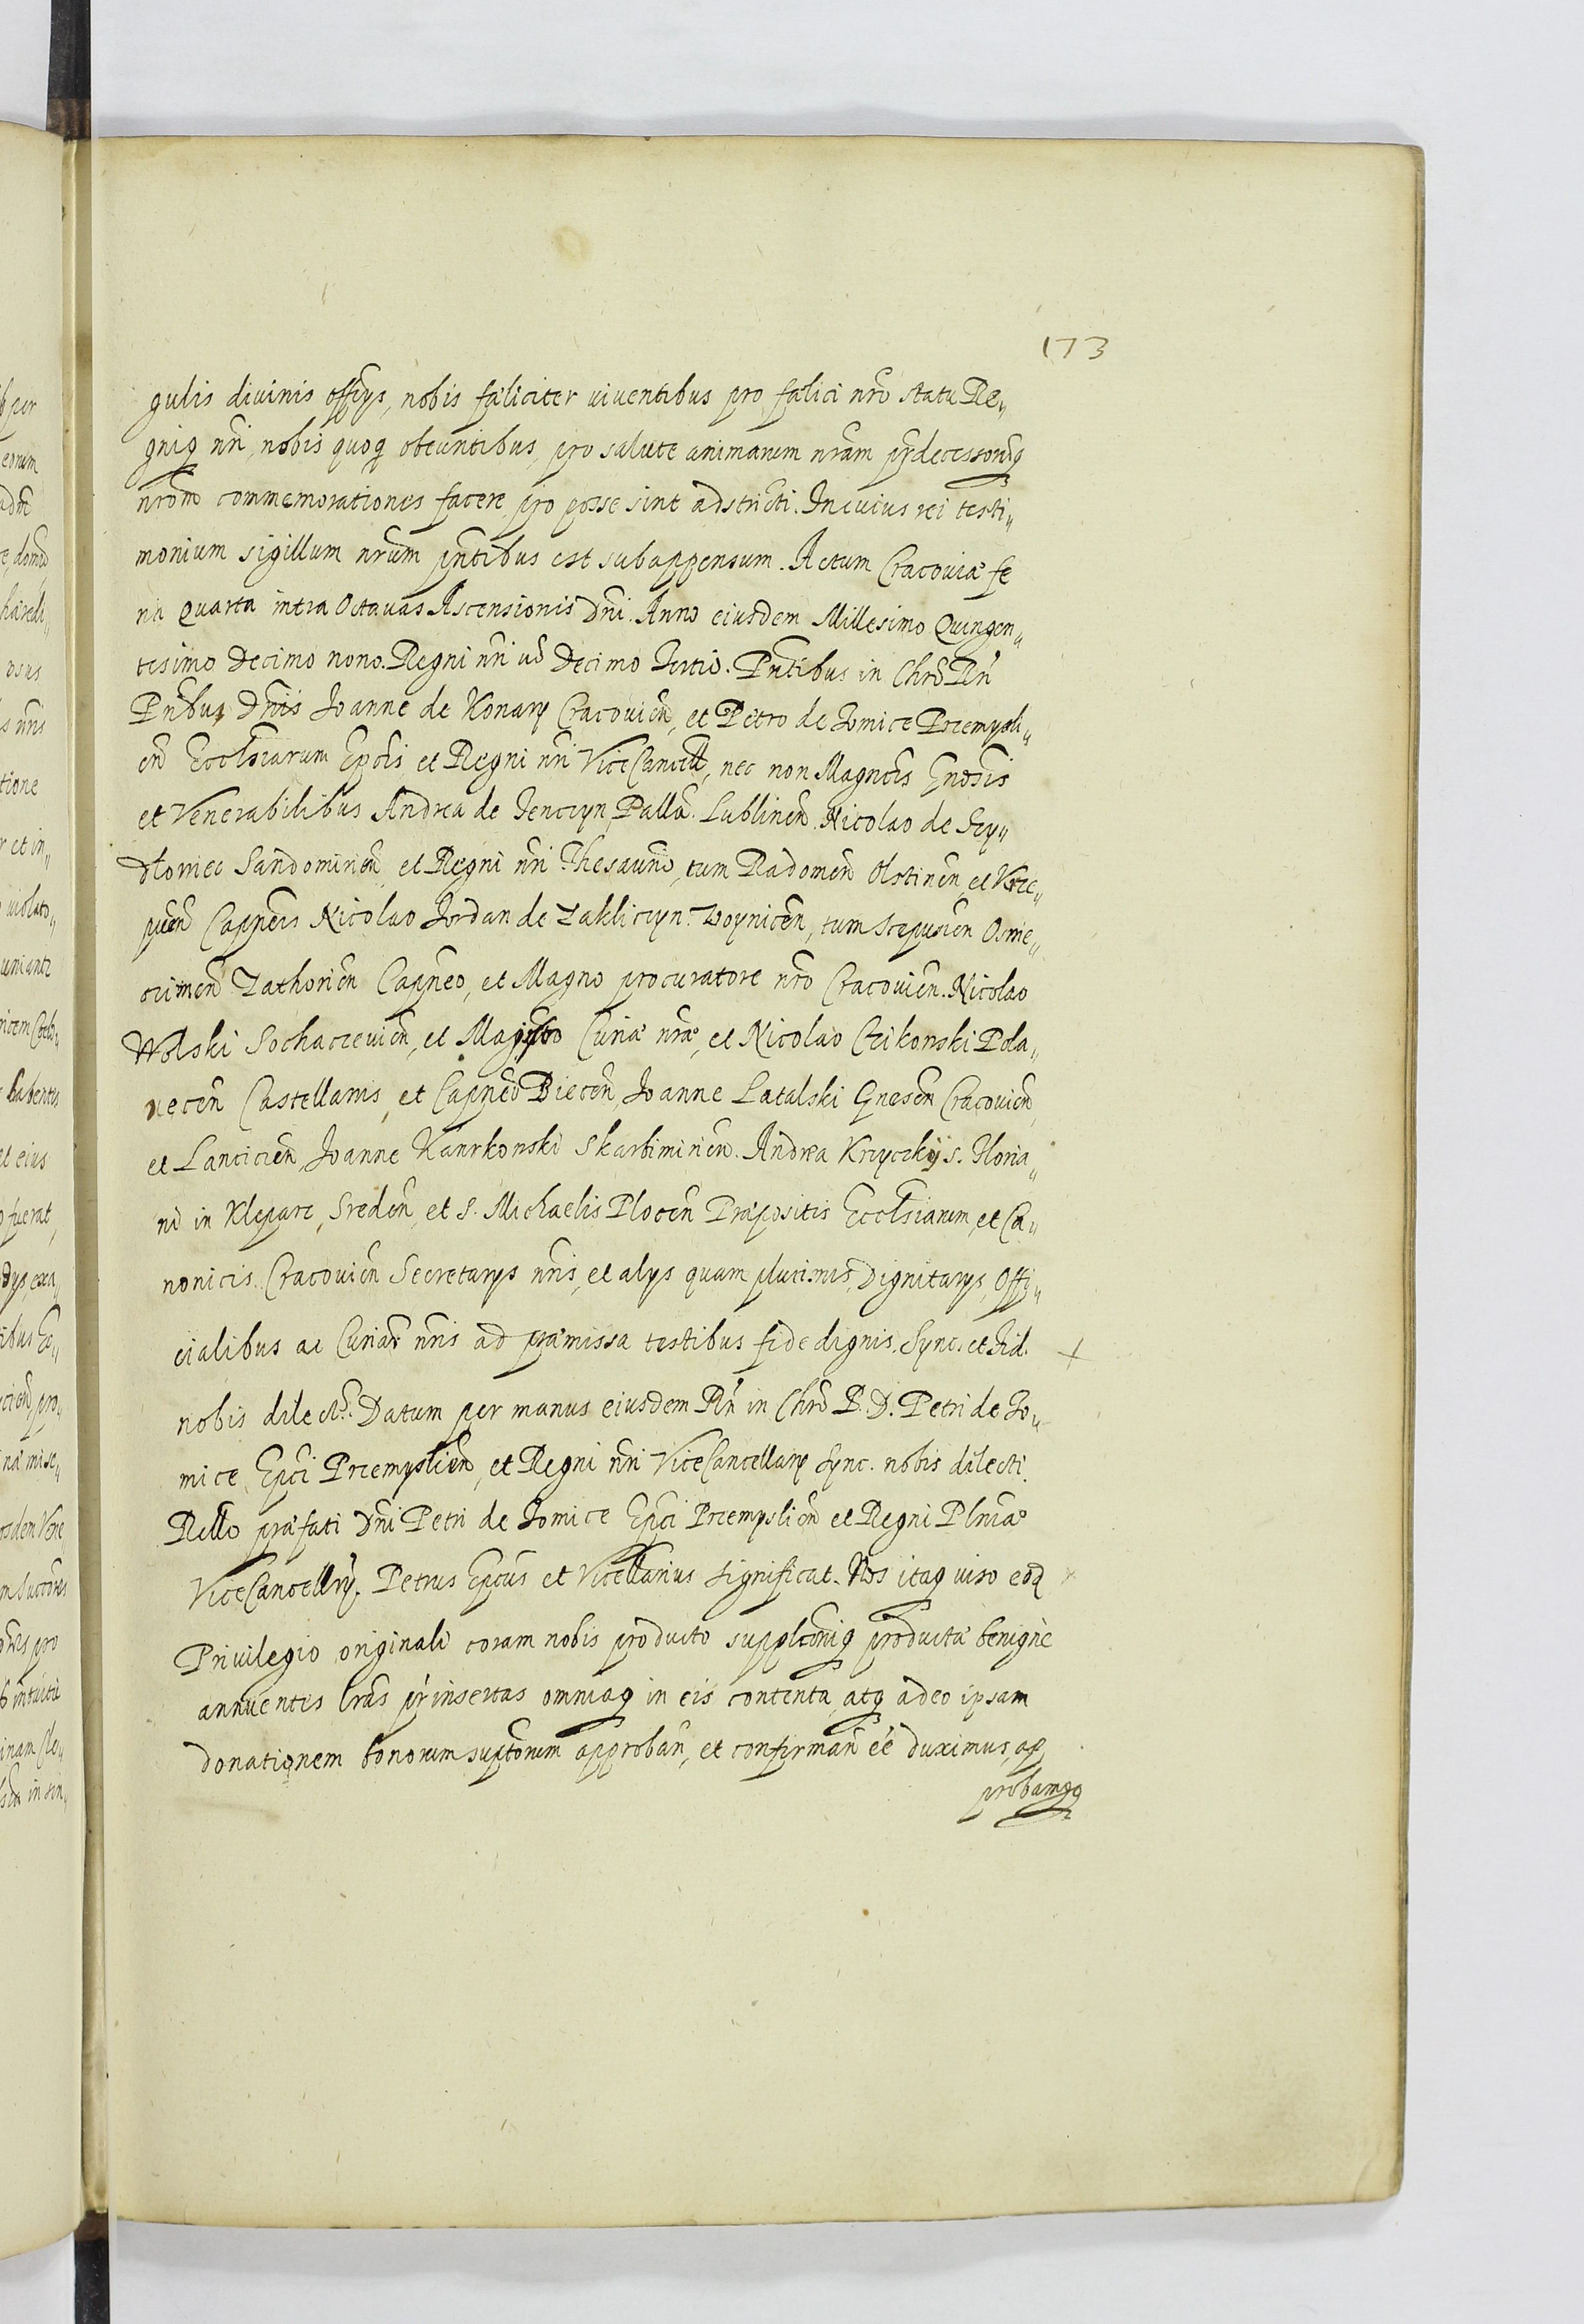 173
gulis diuinis offiys, nobis fæliciter uiuentibus pro fælici nrõ statu Re„
gniq nri, nobis quoq obeuntibus, pro salute animarum nrãm prdecessorũq
nrõm commemorationes facere pro posse sint adstricti. In cuius rei testi„
monium sigillum nrũm pñtibus est subappensum. Actum Cracouiæ fe
ria Quarta intra Octauas Ascensionis Dñi. Anno eiusdem Millesimo Quingen„
tesimo Decimo nono. Regni nri uõ Decimo Tertio. Pñtibus in Chrõ Rñ
Pñbus Dñis Joanne de Konary Cracouieñ, et Petro de Tomice Przemysli„
eñ Ecclsiarum Epcis et Regni nri ViceCancell, nec non Magncis Gnosis
et Venerabilibus Andrea de Tenczyn Pallã. Lublineñ. Nicolao de Szy„
dłowiec Sandomirieñ et Regni nri Thesaurio, tum Radomeñ Olstineñ, et Krze„
pceñ Cappneis Nicolao Jordan de Zakliczyn. Woyniceñ, tum Scepusieñ Oswie„
cimeñ Zathorieñ Capneo, et Magno procuratore nrõ Cracouieñ. Nicolao
Wolski Sochaczeuieñ, et Magistro Curiæ nræ, et Nicolao Czikonski Pola„
neceñ Castellanis, et Capneo Bieceñ, Joanne Latalski Gneseñ Cracouieñ
et Lancicieñ, Joanne Karnkonski Skarbimirieñ. Andrea Krzyczkij S. Floria„
ni in Kleparz, Sredeñ, et S. Michaelis Ploceñ Præpositis Ecclsiarum, et Ca„
nonicis Cracouieñ Secretarys nris, et alys quam plurimis, Dignitarys, Offi„
cialibus ac Curiæ nris ad præmissa testibus fide dignis, Sync. et Fid.
nobis dilectis. Datum per manus eiusdem Rñ in Chrõ P. D. Petri de To„
mice, Epci Przemyslieñ, et Regni nri ViceCancellary Sync. nobis dilecti.
Rello præfati Dñi Petri de Tomice Epci Przemyslieñ et Regni Plniæ
ViceCancellry. Petrus Epcus et Vicellarius significat. Nos itaq uiso eõd
Priuilegio originali coram nobis producto supplcõniq producta benignè
annuentes lrãs prinsertas omniaq in eis contenta, atq adeo ipsam
donationem bonorum suptorum approbañ, et confirmañ eẽ duximus, ap
probamqq